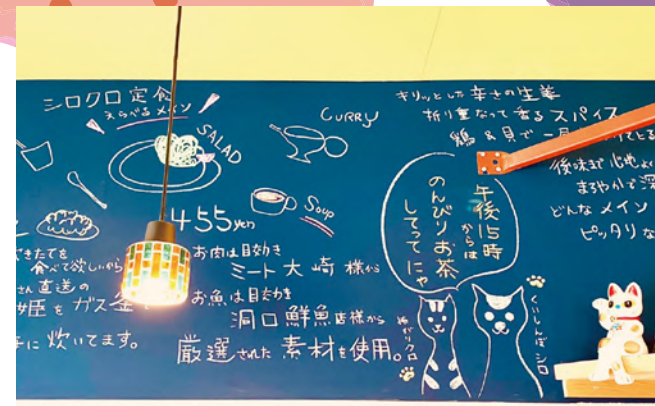 シロクロ定食
えらべるメイン
SALAD
CURRY
Soup
455yen
できたてを
食べて欲しいから
さん直送の
姫をガス釜
に炊いてます。
お肉は目効き
ミート大崎様から
お魚は目効き
洞口鮮魚店様から
厳選された素材を使用。
キリッとした辛さの生姜
折り重なって香るスパイス
鶏&貝で一
後味まで心地よく
まろやかで深
どんなメイン
ピッタリな
午後15時
からは
のんびりお茶
してってにゃ
ねがりクロ
くいしんぼシロ